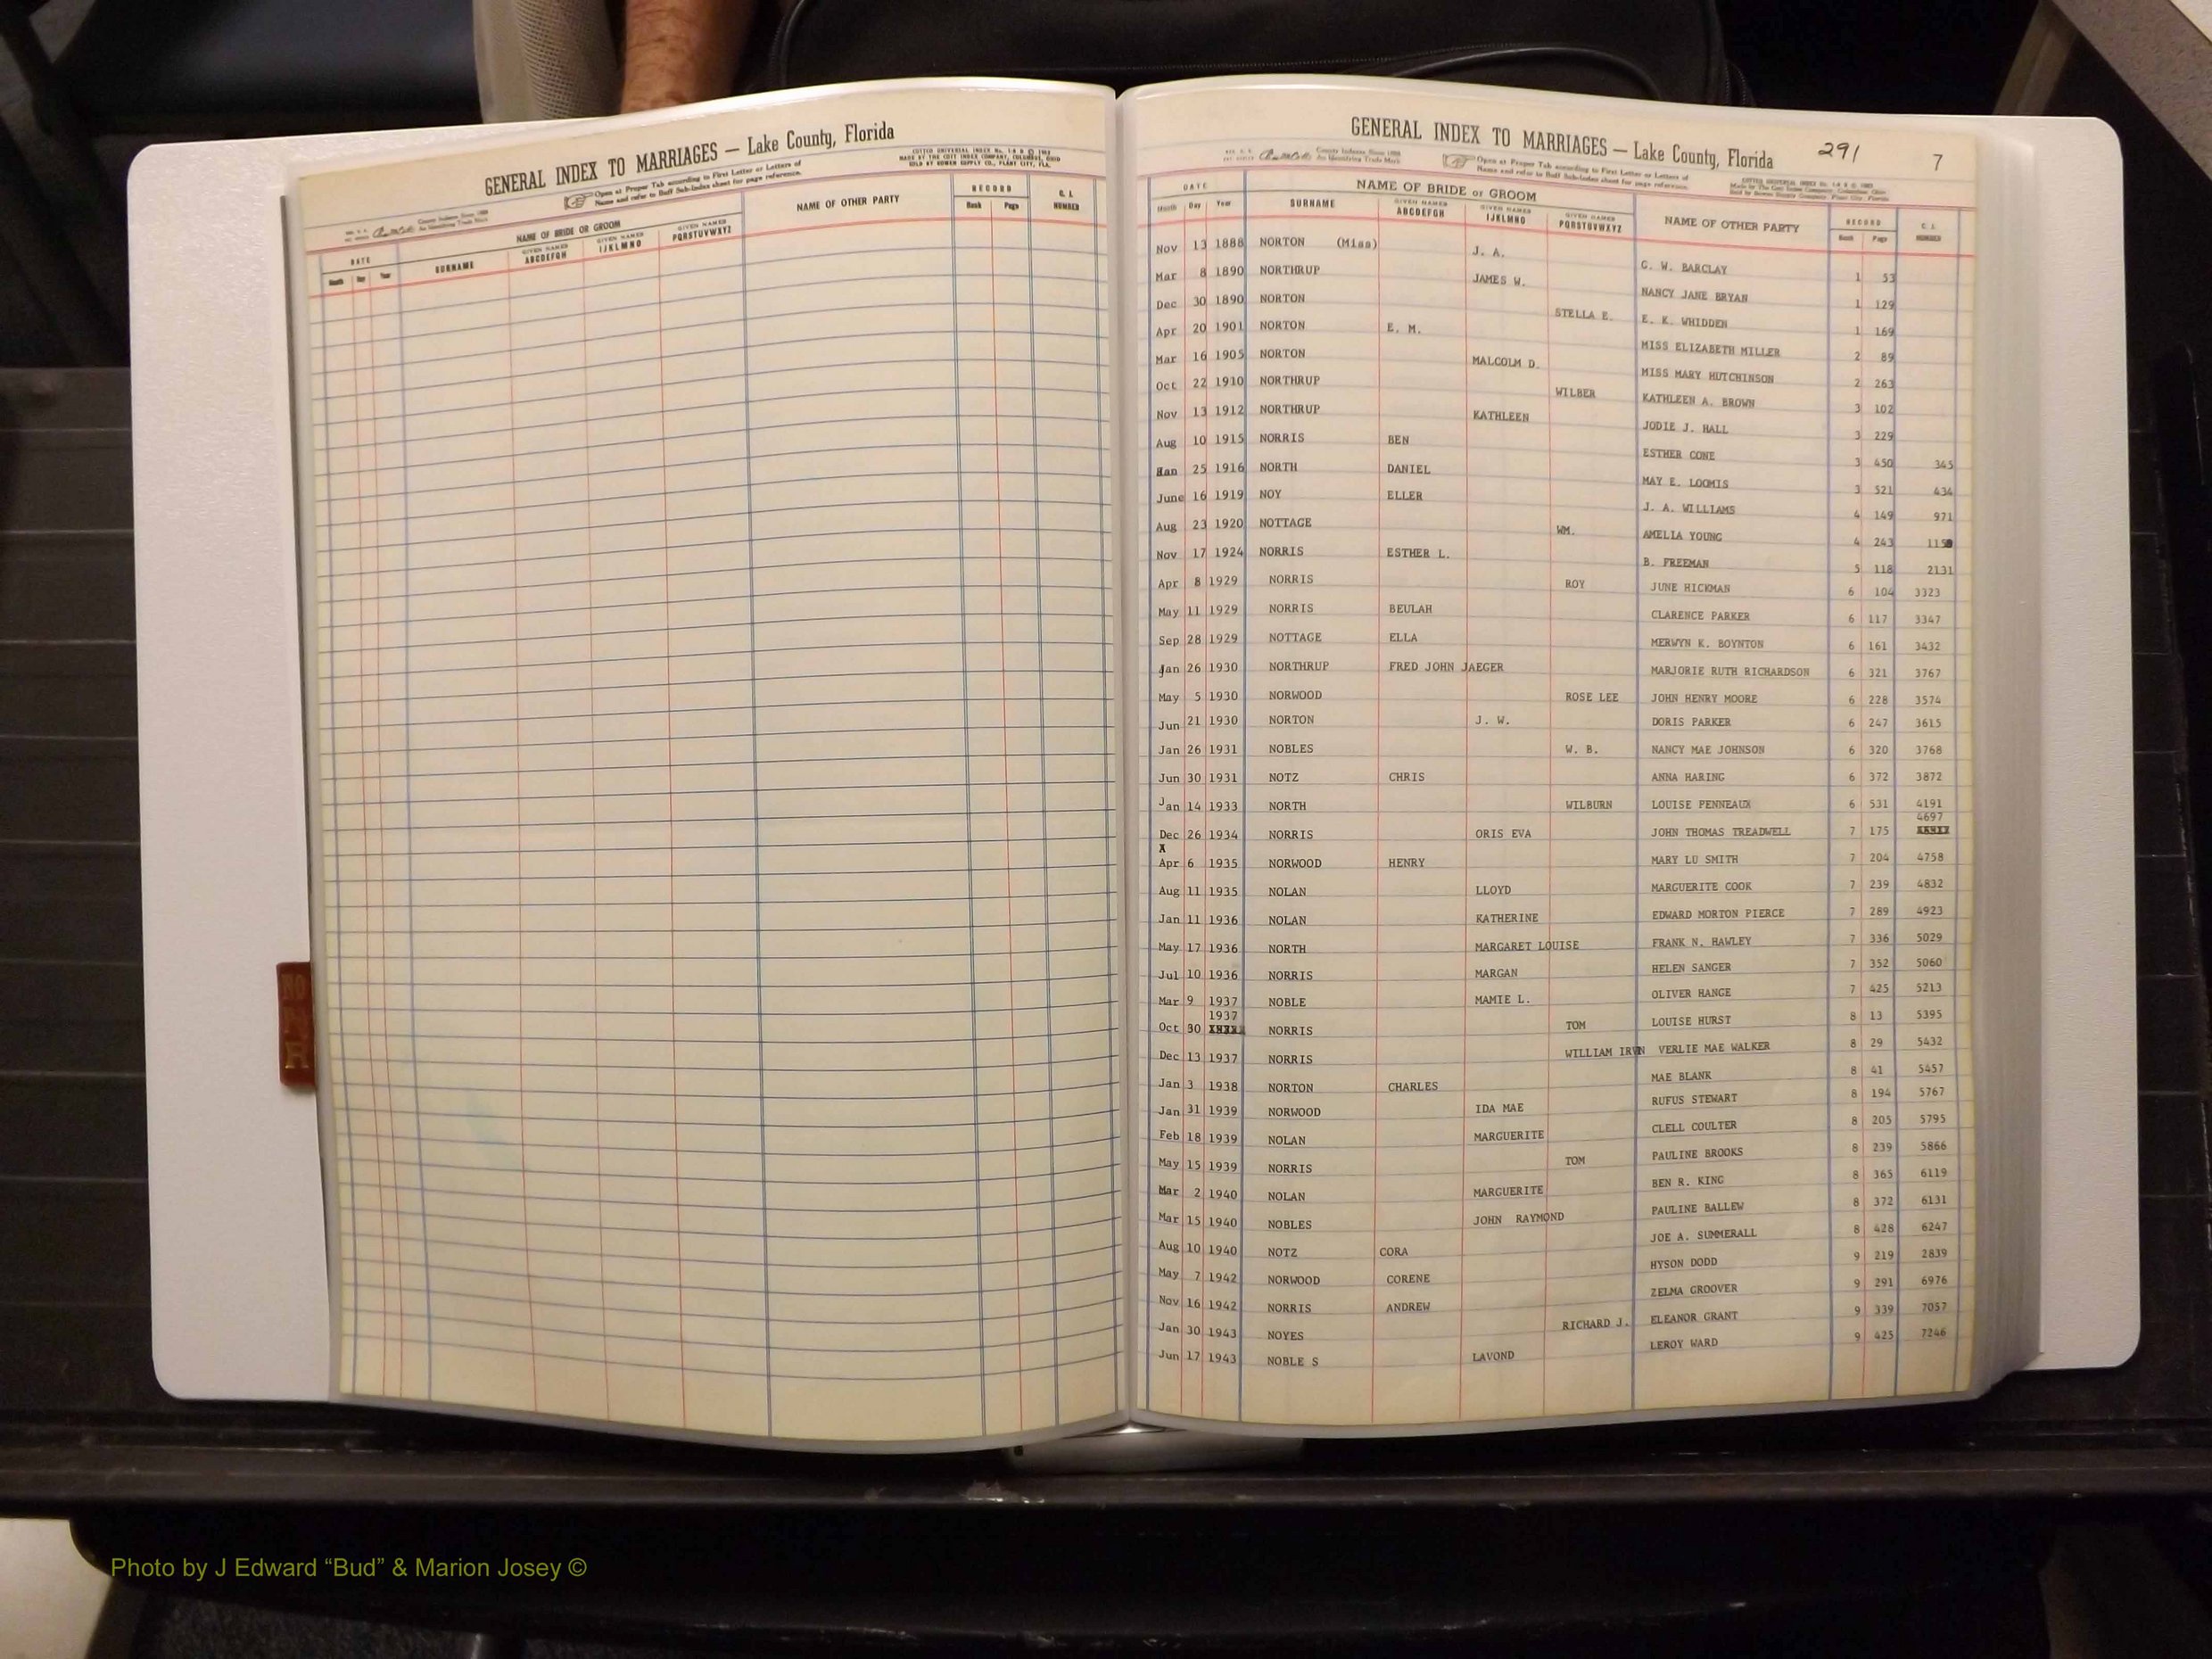 GENERAL INDEX TO MARRIAGES — Lake County, Florida
Open at Proper Tab according to First Letter or Letters of
Name and refer to Buff Sub-Index sheet for page reference.
DATE NAME OF BRIDE OR GROOM NAME OF OTHER PARTY RECORD C. I.
Month Day Year SURNAME GIVEN NAMES ABCDEFGH GIVEN NAMES IJKLMNO GIVEN NAMES PQRSTUVWXYZ Book Page NUMBER
NO
R
GENERAL INDEX TO MARRIAGES — Lake County, Florida 291 7
Open at Proper Tab according to First Letter or Letters of
Name and refer to Buff Sub-Index sheet for page reference.
DATE NAME OF BRIDE or GROOM NAME OF OTHER PARTY RECORD C. I.
Month Day Year SURNAME GIVEN NAMES ABCDEFGH GIVEN NAMES IJKLMNO GIVEN NAMES PQRSTUVWXYZ Book Page NUMBER
Nov 13 1888 NORTON (Miss) J. A. G. W. BARCLAY 1 53
Mar 8 1890 NORTHRUP JAMES W. NANCY JANE BRYAN 1 129
Dec 30 1890 NORTON STELLA E. E. K. WHIDDEN 1 169
Apr 20 1901 NORTON E. M. MISS ELIZABETH MILLER 2 89
Mar 16 1905 NORTON MALCOLM D. MISS MARY HUTCHINSON 2 263
Oct 22 1910 NORTHRUP WILBER KATHLEEN A. BROWN 3 102
Nov 13 1912 NORTHRUP KATHLEEN JODIE J. HALL 3 229
Aug 10 1915 NORRIS BEN ESTHER CONE 3 450 345
Jan 25 1916 NORTH DANIEL MAY E. LOOMIS 3 521 434
June 16 1919 NOY ELLER J. A. WILLIAMS 4 149 971
Aug 23 1920 NOTTAGE WM. AMELIA YOUNG 4 243
Nov 17 1924 NORRIS ESTHER L. B. FREEMAN 5 118 2131
Apr 8 1929 NORRIS ROY JUNE HICKMAN 6 104 3323
May 11 1929 NORRIS BEULAH CLARENCE PARKER 6 117 3347
Sep 28 1929 NOTTAGE ELLA MERWYN K. BOYNTON 6 161 3432
Jan 26 1930 NORTHRUP FRED JOHN JAEGER MARJORIE RUTH RICHARDSON 6 321 3767
May 5 1930 NORWOOD ROSE LEE JOHN HENRY MOORE 6 228 3574
Jun 21 1930 NORTON J. W. DORIS PARKER 6 247 3615
Jan 26 1931 NOBLES W. B. NANCY MAE JOHNSON 6 320 3768
Jun 30 1931 NOTZ CHRIS ANNA HARING 6 372 3872
Jan 14 1933 NORTH WILBURN LOUISE PENNEAUX 6 531 4191
4697
Dec 26 1934 NORRIS ORIS EVA JOHN THOMAS TREADWELL 7 175
X
Apr 6 1935 NORWOOD HENRY MARY LU SMITH 7 204 4758
Aug 11 1935 NOLAN LLOYD MARGUERITE COOK 7 239 4832
Jan 11 1936 NOLAN KATHERINE EDWARD MORTON PIERCE 7 289 4923
May 17 1936 NORTH MARGARET LOUISE FRANK N. HAWLEY 7 336 5029
Jul 10 1936 NORRIS MARGAN HELEN SANGER 7 352 5060
Mar 9 1937 NOBLE MAMIE L. OLIVER HANGE 7 425 5213
1937
Oct 30 NORRIS TOM LOUISE HURST 8 13 5395
Dec 13 1937 NORRIS WILLIAM IRVN VERLIE MAE WALKER 8 29 5432
Jan 3 1938 NORTON CHARLES MAE BLANK 8 41 5457
Jan 31 1939 NORWOOD IDA MAE RUFUS STEWART 8 194 5767
Feb 18 1939 NOLAN MARGUERITE CLELL COULTER 8 205 5795
May 15 1939 NORRIS TOM PAULINE BROOKS 8 239 5866
Mar 2 1940 NOLAN MARGUERITE BEN R. KING 8 365 6119
Mar 15 1940 NOBLES JOHN RAYMOND PAULINE BALLEW 8 372 6131
Aug 10 1940 NOTZ CORA JOE A. SUMMERALL 8 428 6247
May 7 1942 NORWOOD CORENE HYSON DODD 9 219 2839
Nov 16 1942 NORRIS ANDREW ZELMA GROOVER 9 291 6976
Jan 30 1943 NOYES RICHARD J. ELEANOR GRANT 9 339 7057
Jun 17 1943 NOBLE S LAVOND LEROY WARD 9 425 7246
Photo by J Edward “Bud” & Marion Josey ©